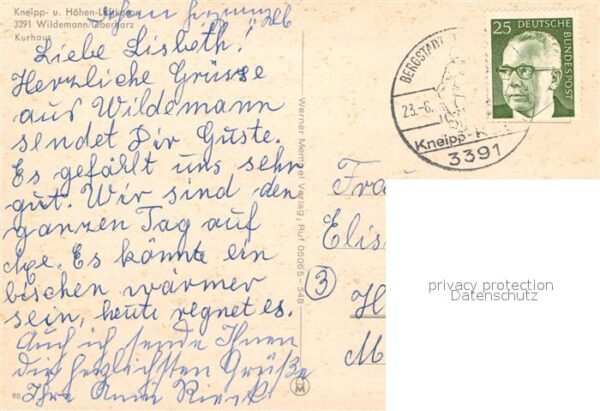 Kneipp- u. Höhen-Luftkurort
3391 Wildemann/Oberharz
Kurhaus
Liebe Lisbeth!
Herzliche Grüsse
aus Wildemann
sendet Dir Guste.
Es gefällt uns sehr
gut. Wir sind den
ganzen Tag auf
Es könnte ein
bischen wärmer
sein, heute regnet es.
Auch ich sende Ihnen
die herzlichsten Grüße
Ihre Anni
98
Werner Memmel Verlag, Ruf 05065-548
M
25 DEUTSCHE
BUNDESPOST
BERGSTADT
23.-6.
Kneipp-K
3391
Frau
Elis
3
H
M
privacy protection
Datenschutz